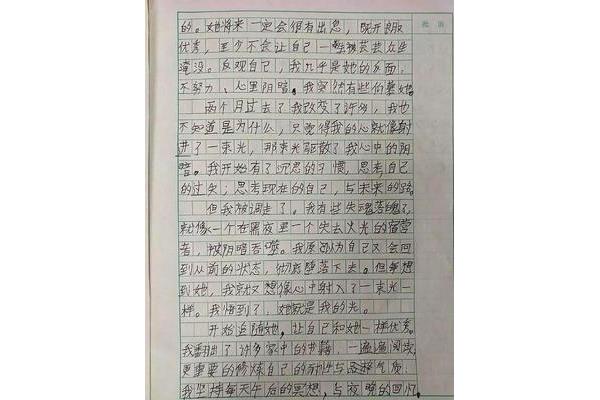 批 语
的。她将来一定会很有出息，既开朗又
优秀，至少不会让自己一辈子被芸芸众生
淹没。反观自己，我几乎是她的反面，
不努力、心里阴暗。我突然有些仰慕她
两个月过去了我改变了许多，我也
不知道是为什么，只觉得我的心就像射
进了一束光，那束光驱散了我心中的阴
暗。我开始有了沉思的习惯，思考自己
的过失；思考现在的自己，与未来的路。
但我被调走了。我有些失魂落魄了，
就像一个在黑夜里一个失去火光的宿营
者，被阴暗吞噬。我原以为自己又会回
到从前的状态，彻底堕落下去。但每想
到她，我就又想像心中射入了一束光一
样。我悟到了，她就是我的光。
开始追随她，让自己和她一样优秀。
我翻出了许多家中的书籍，一遍遍阅读，
更重要的修炼自己的耐性与品格气质。
我坚持每天午后的冥想，与夜晚的回忆，